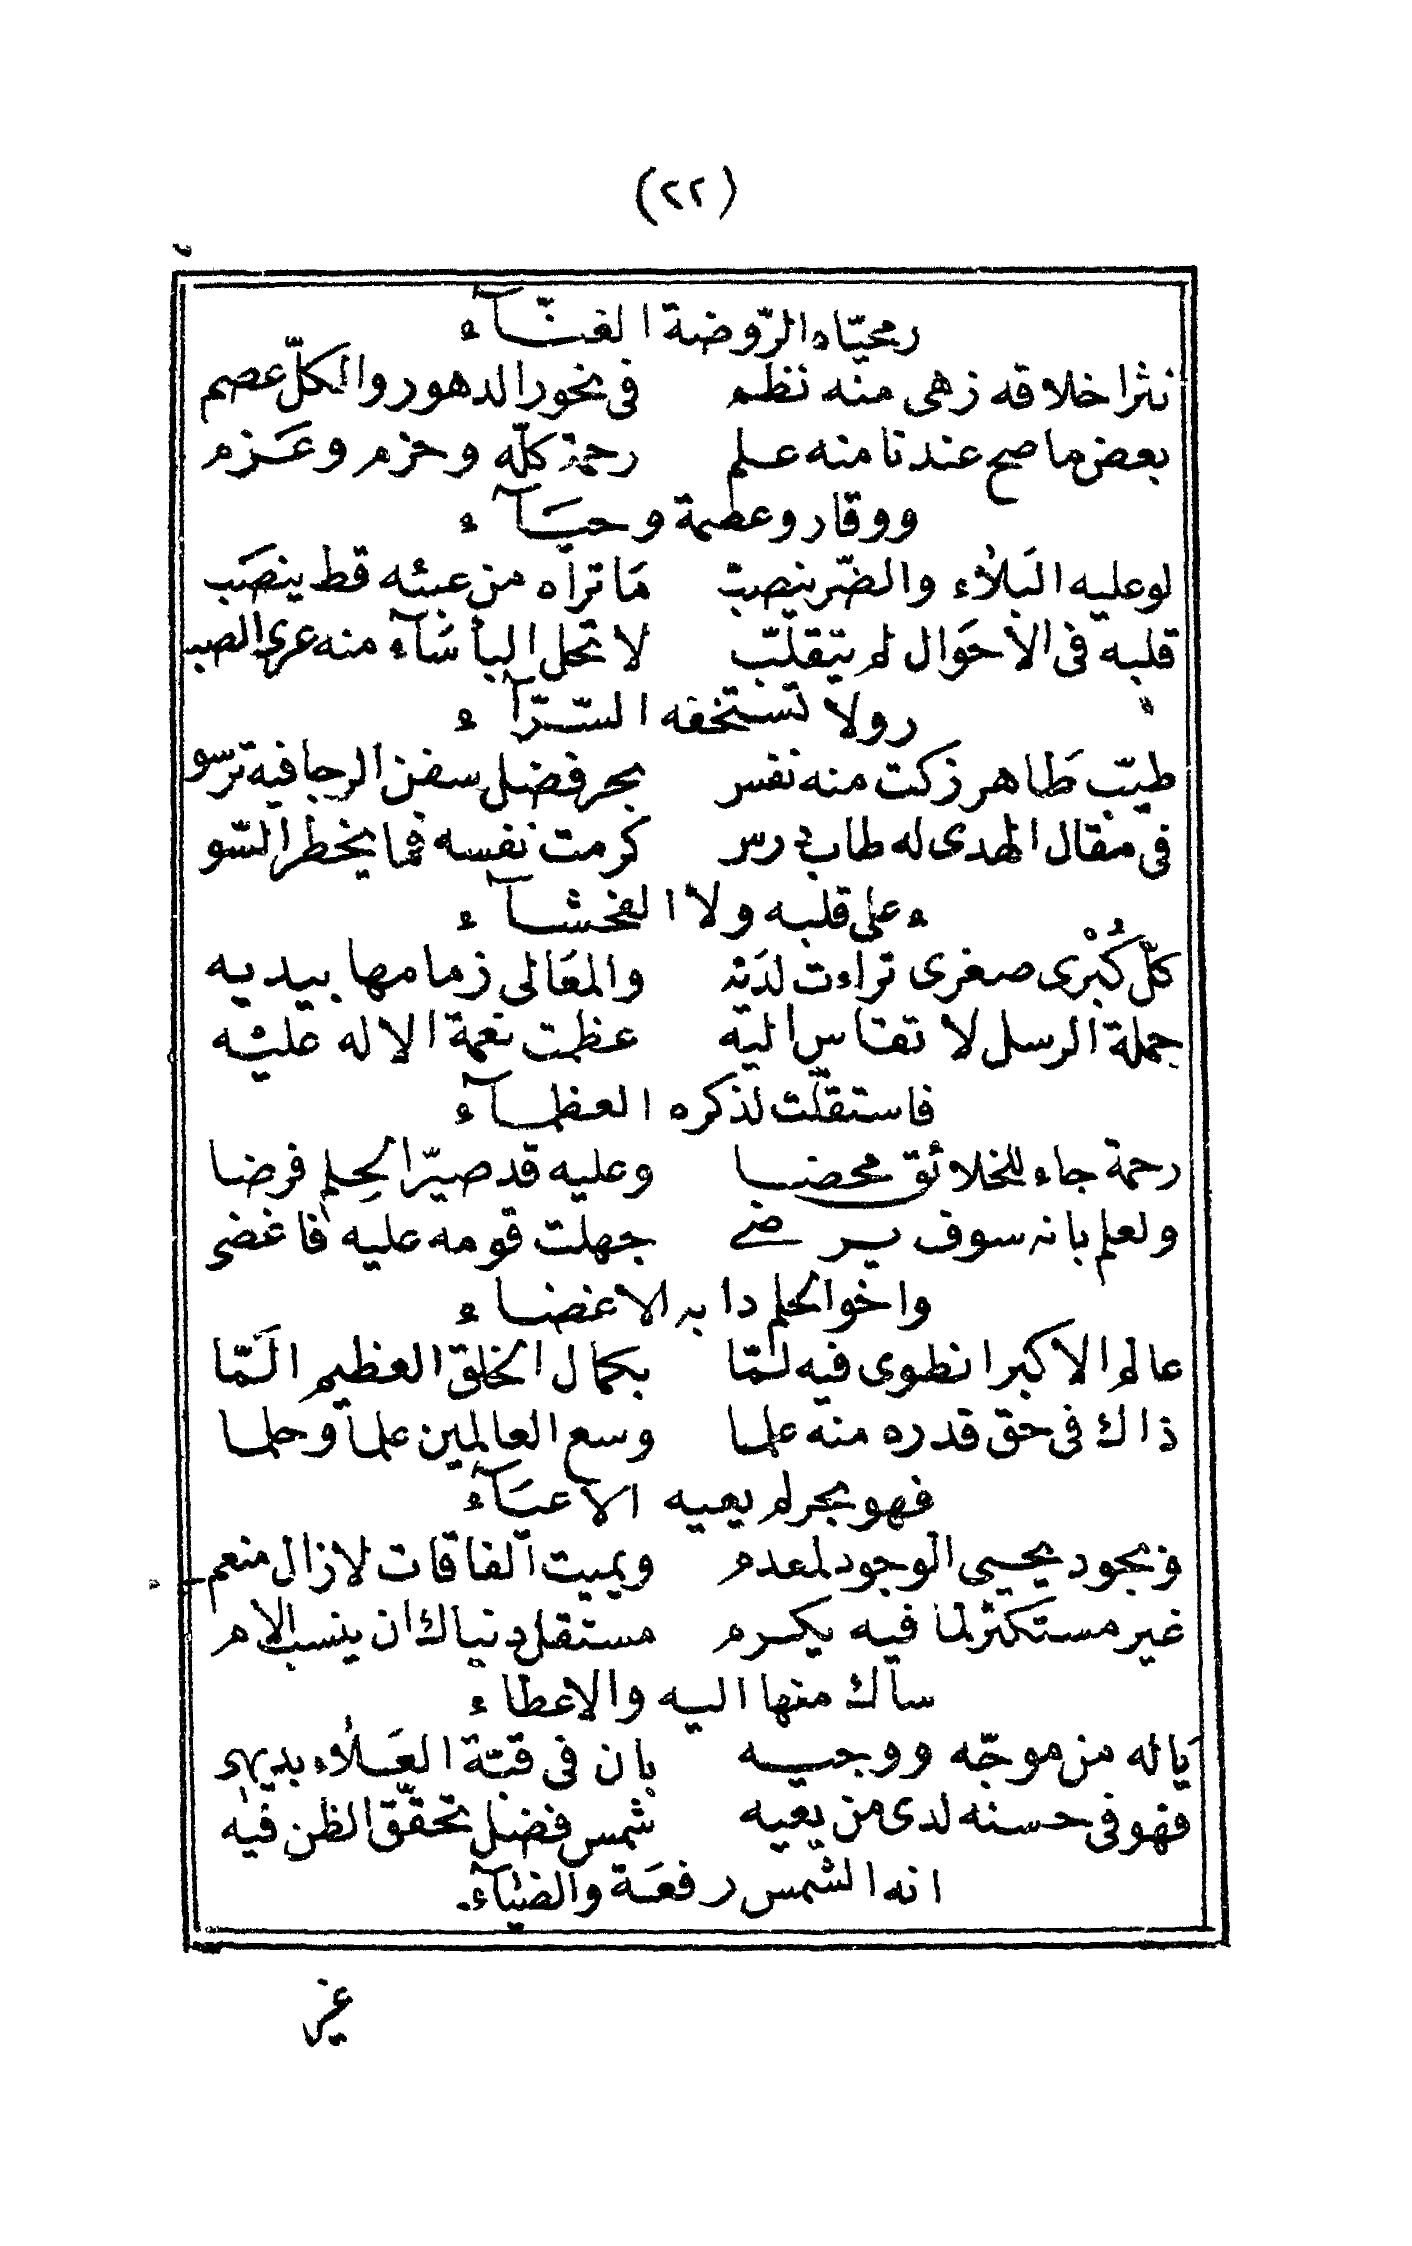 (٢٢)
ر محيّاه الرّوضة الغنّآء
نثر اخلاقه زهى منه نظم في نحور الدهور والكلّ عصم
بعض ما صح عندنا منه علم رحمة كلّه وحزم وعَزم
ووقار وعصمة وحيَآء
لو عليه البَلاُء والضّر ينصبّ مَا تراه من عبئه قط ينصَب
قلبه في الاحَوال لم يتقلّب لا تحل البأسَآء منه عرى الصبـ
ر ولا تستخفه السّرّآء
طيّب طَاهر زكت منه نفس بحر فضل سفن الرجا فيه ترسو
في مقال الهدى له طاب درس كرمت نفسه فما يخطر السّو
ء على قلبه ولا الفحشآء
كلّ كُبْرى صغرى تراءت لدَيْه والمعَالى زمامها بيديه
جملة الرسل لا تقاس اليه عظمت نعمة الاله عليْه
فاستقلّت لذكره العظمآء
رحمة جاء للخلائق محضا وعليه قد صيّر الحِلم فرضا
ولعلم بانه سوف يرضے جهلت قومه عليه فاغضى
واخو الحلم دابه الاغضاء
عالم الاكبر انطوى فيه لمّا بكمال الخلق العظيم المّا
ذاك في حق قدره منه علما وسع العالمين علما وحلما
فهو بحر لم يعيه الاعبَآء
فبجود يحيى الوجود لمعدم ويميت الفاقات لازال منعم
غير مستكثر لما فيه يكرم مستقل دنياك ان ينسب الام
ساك منها اليه والاعطاء
يَا له من موجّه ووجيه بان في قبّة العَلاُء بديهي
فهو في حسنه لدى من يعيه شمس فضل تحقّق الظن فيه
انه الشمس رفعَة والضيَآء.
غير